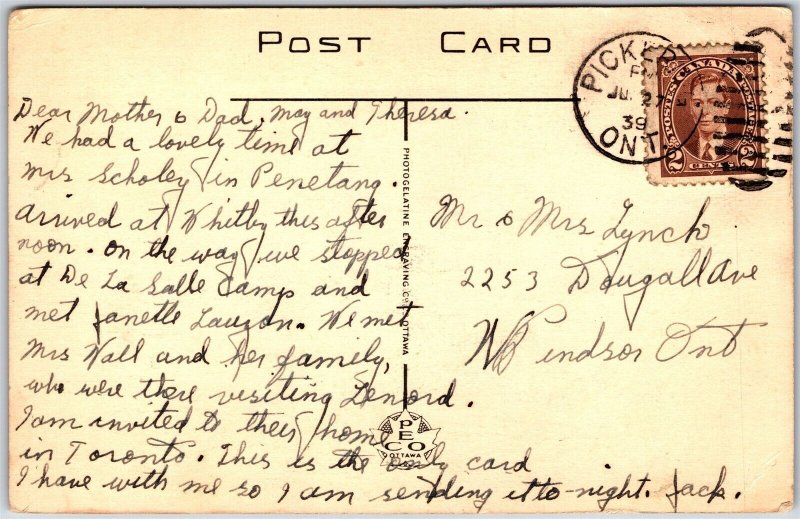 POST CARD
PICKERI
PM
JU 27
39
ONT
POSTES CANADA POSTAGE
2 CENTS 2
Dear Mother & Dad, May and Theresa.
We had a lovely time at
Mrs Scholey in Penetang.
Arrived at Whitby this after
noon. On the way we stopped
at De La Salle Camp and
met Janette Lauzon. We met
Mrs Wall and her family,
who were there visiting Lenord.
I am invited to their home
in Toronto. This is the only card
I have with me so I am sending it to-night. Jack.
PHOTOGELATINE ENGRAVING CO. OTTAWA
PECO
OTTAWA
Mr & Mrs Lynch
2253 Dougall Ave
Windsor Ont